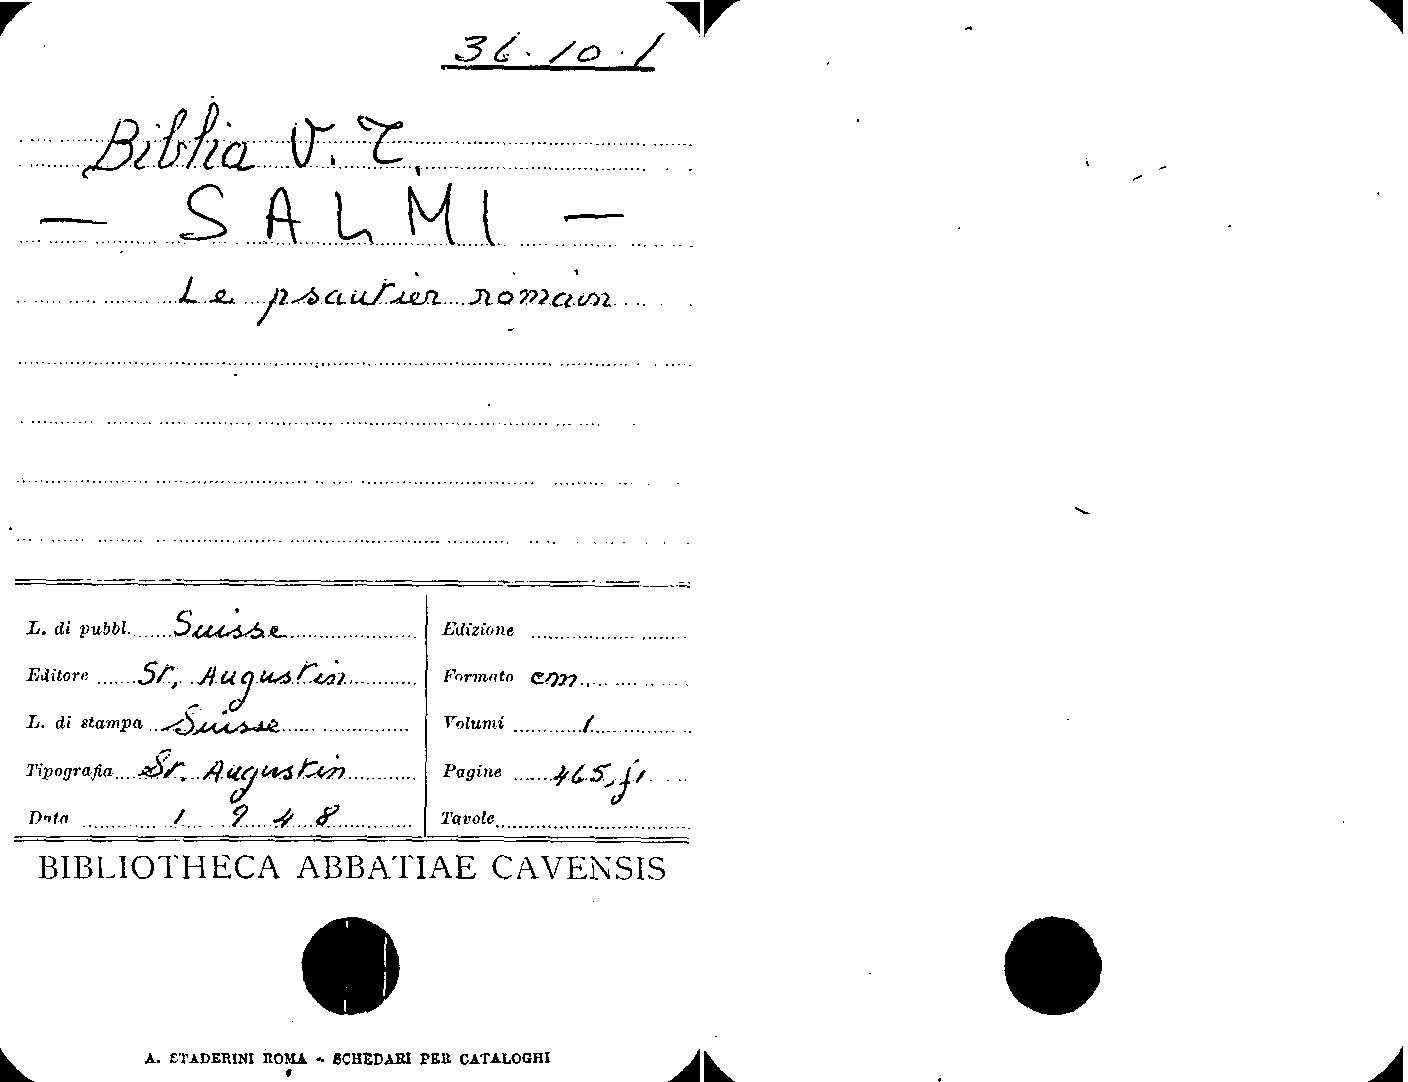 36.10.1
Biblia V.T.
— SALMI —
Le psautier romain
L. di pubbl. Suisse
Editore St, Augustin
L. di stampa Suisse
Tipografia St. Augustin
Data 1948
Edizione
Formato cm
Volumi 1
Pagine 465, j1
Tavole
BIBLIOTHECA ABBATIAE CAVENSIS
A. STADERINI ROMA - SCHEDARI PER CATALOGHI